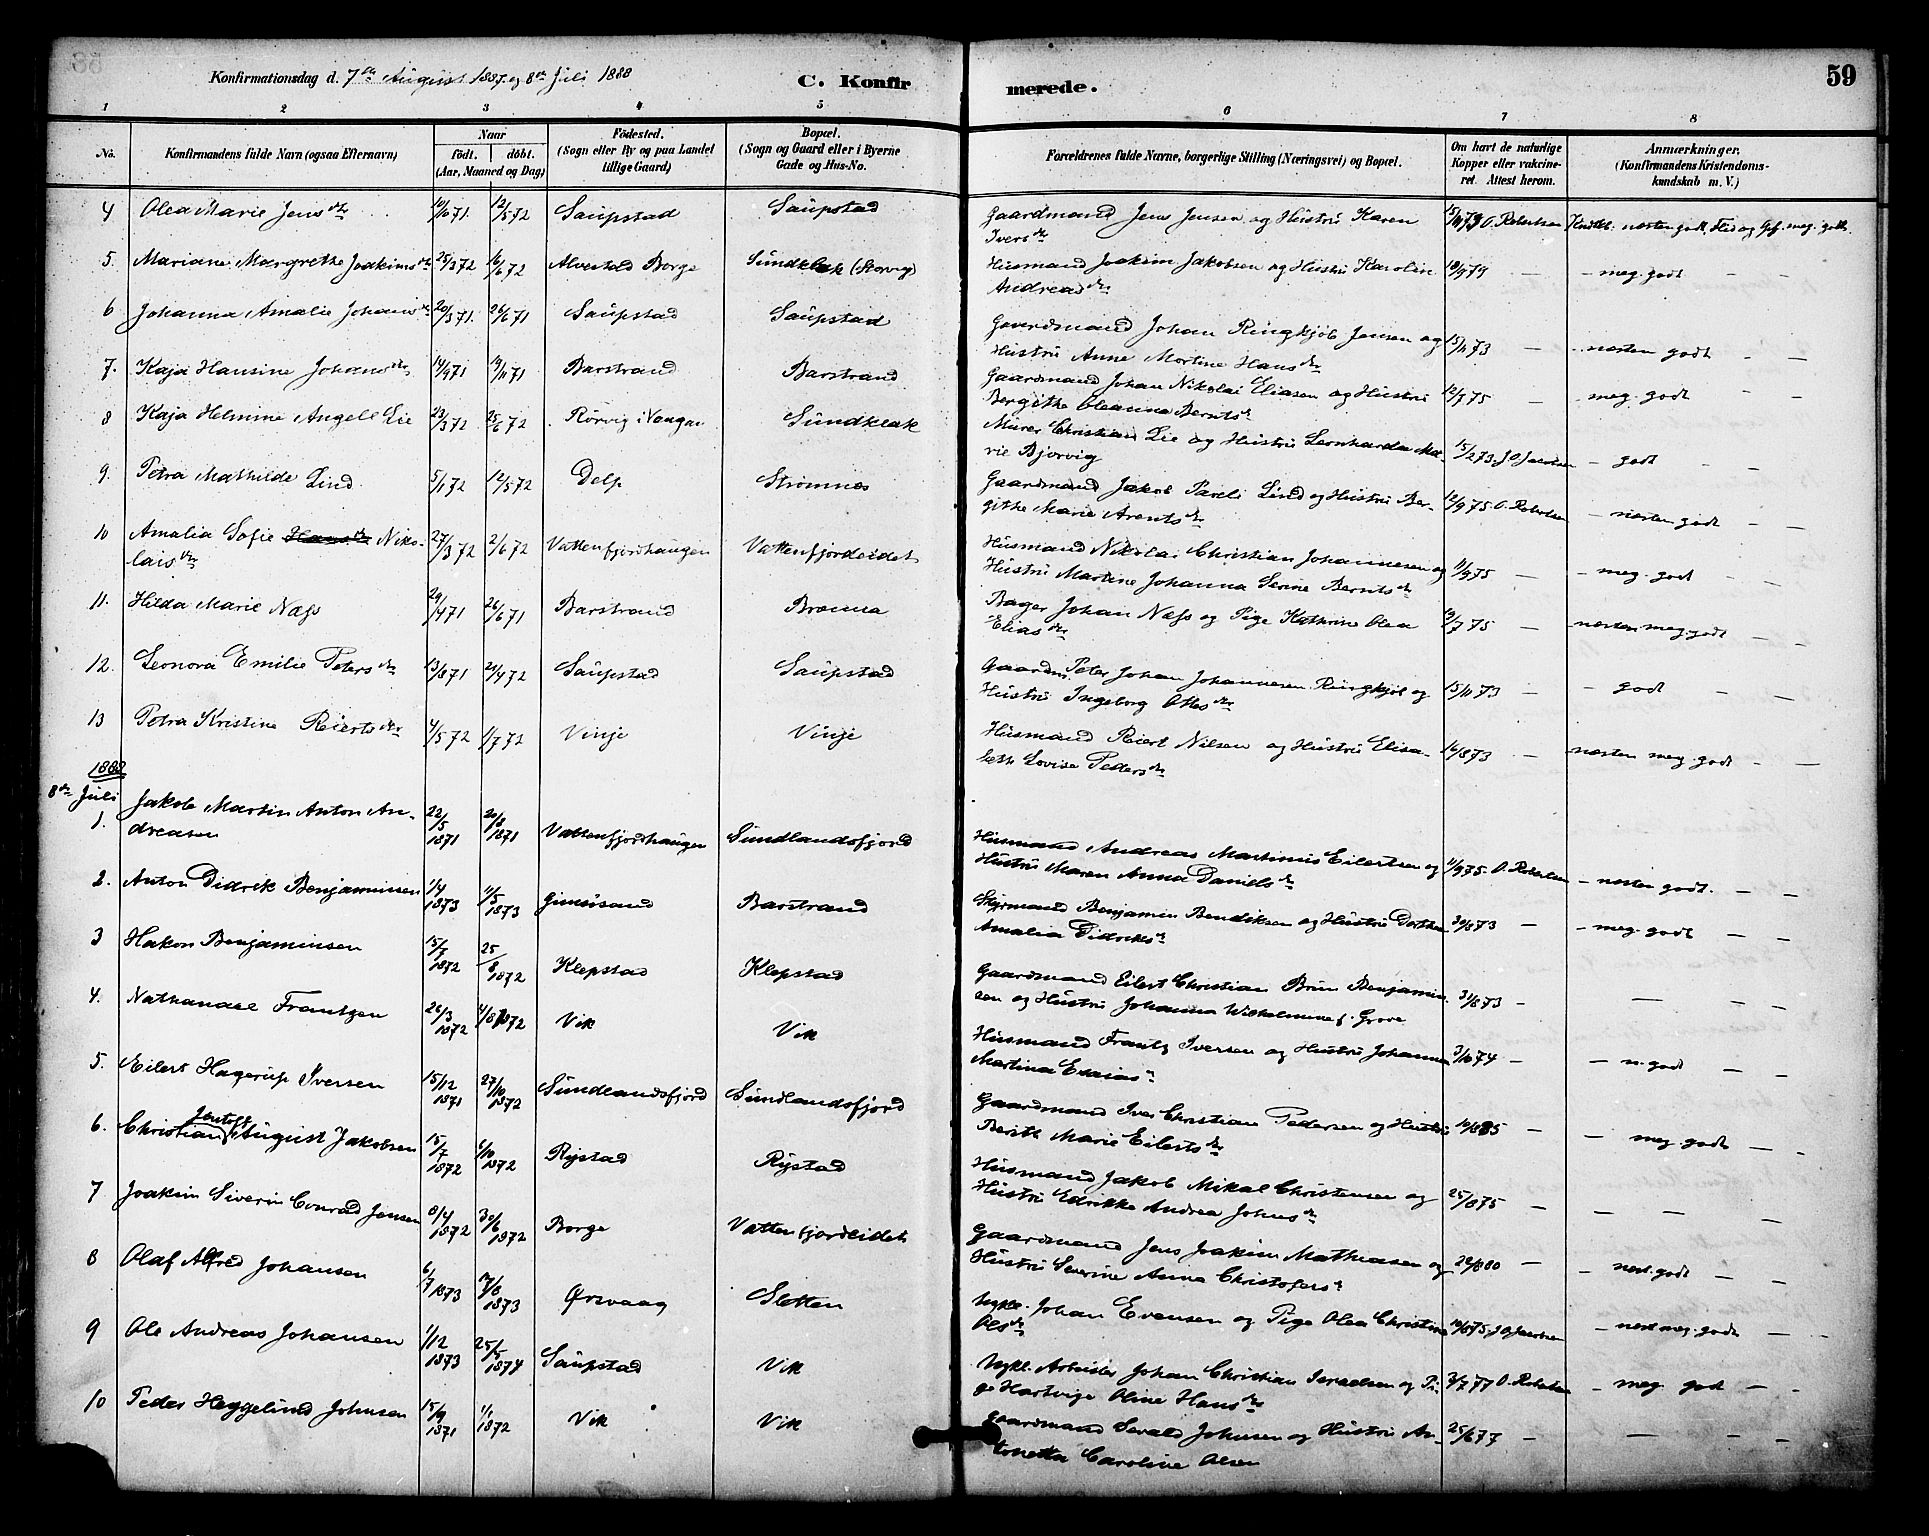 Konfirmationsdag d. 7de August 1887 og 8de Juli 1888
C. Konfirmerede.
59
1 2 3 4 5 6 7 8
No.
Konfirmandens fulde Navn (ogsaa Efternavn)
Naar
födt. döbt.
(Aar, Maaned og Dag)
Födested.
(Sogn eller By og paa Landet
tillige Gaard)
Bopæl.
(Sogn og Gaard eller i Byerne
Gade og Hus-No.
Forældrenes fulde Navne, borgerlige Stilling (Næringsvei) og Bopæl.
Om havt de naturlige
Kopper eller vakcine-
ret. Attest herom.
Anmærkninger.
(Konfirmandens Kristendoms-
kundskab m. V.)
4 Olea Marie Jensdtr 10/10 71. 12/5 72 Saupstad Saupstad Gaardmand Jens Jensen og Hustru Karen O. Robertsen næsten godt, Flid og meg. godt.
Iversdtr
5. Mariane Margrethe Joakimsdtr 25/3 72 16/6 72 Alvestad Borge Sundklak (Storvig) Husmand Joakim Jakobsen og Hustru Karolin 18/9 79 — – meg. godt — —
Andreasdtr
6 Johanna Amalie Johansdtr 20/3 71. 26/6 71 Saupstad Saupstad Gaardmand Johan Ringkjøb Jensen og 15/11 73 — næsten godt – —
Hustru Anne Martine Hansdtr
7. Kaja Hansine Johansdtr 14/9 71 19/11 71 Barstrand Barstrand Gaardmand Johan Nikolai Eliasen og Hustru 12/9 75 — meg. godt – —
Bergithe Oleanna Berntsdtr
8 Kaja Helmine Angell Lie 23/3 72 25/6 72 Rørvig i Vaagan Sundklak Murer Christian Lie og Hustru Leonharda Ma- 15/2 73. J O Jacobsen – godt – —
rie Bjorvig
9. Petra Mathilde Lind 5/1 72 12/5 72 Delp Strømnæs Gaardmand Jakob Pareli Lind og Hustru Ber- 12/9 75 O. Robertsen – næsten godt – —
githe Marie Arentsdtr
10 Amalia Sofie Hansdtr Niko- 27/3 72 2/6 72 Vattenfjordhaugen Vattenfjordeidet Husmand Nikolai Christian Johannesen og 11/9 75 — – meg. godt – —
laisdtr Hustru Martine Johanna Serine Berntsdtr
11. Hilda Marie Næss 29/4 71 26/6 71 Barstrand Brenna Bager Johan Næss og Pige Kathrine Olea 19/7 75 — næsten meg. godt – —
Eliasdtr
12. Leonora Emilie Petersdtr 13/8 71 21/4 72 Saupstad Saupstad Gaardm. Peter Johan Johannesen Ringkjøb og 15/11 73 — – godt – —
Hustru Ingeborg Ottesdtr
13 Petra Kristine Reiertsdtr 4/5 72 1/7 72 Vinje Vinje Husmand Reiert Nilsen og Hustru Elisa- 16/8 73 — næsten meg. godt – —
beth Lovise Pedersdtr
1888
8de Juli
1. Jakob Martin Anton An- 22/5 1871 20/8 1871 Vattenfjordhaugen Sundlandsfjord Husmand Andreas Martinus Eilertsen og 11/9 75. O. Robertsen – næsten godt. – —
dreasen Hustru Maren Anna Danielsdtr
2. Anton Didrik Benjaminsen 1/4 1873 11/5 1873 Gimsøsand Barstrand Styrmand Benjamin Bendiksen og Hustru Dorthea 30/8 73 — – meg. godt — —
Amalia Didriksdtr
3 Hakon Benjaminsen 15/7 1872 25/8 1872 Klepstad Klepstad Gaardmand Eilert Christian Brun Benjamin- 31/8 73 – — — —
sen og Hustru Johanna Wilhelmine f. Grove
4. Nathanael Frantzen 26/3 1872 4/8 1872 Vik Vik Husmand Frantz Iversen og Hustru Johanna 3/10 74 – – n. godt — –
Martina Esaiasdtr
5. Eilert Hagerup Iversen 15/12 1871 27/10 1872 Sundlandsfjord Sundlandsfjord Gaardmand Iver Christian Pedersen og Hustru — – meg godt — –
Berith Marie Eilertsdtr
6. Christian Jentoft August Jakobsen 15/7 1872 6/10 1872 Rystad Rystad Husmand Jakob Mikal Christensen og 25/8 75 – — — —
Hustru Edrikke Andrea Johnsdtr
7 Joakim Siverin Conrad Jensen 8/4 1872 30/6 1872 Borge Vattenfjordeidet Gaardmand Jens Joakim Mathiasen og 22/8 80 — – næst. godt – —
Hustru Severine Anna Christofersdtr
8 Olaf Alfred Johansen 6/7 1873 1873 Ørsvaag Sletten Ugkl. Johan Evensen og Pige Olea Christine J O Jacobsen – næst meg. godt — —
Olsdtr
9 Ole Andreas Johansen 1/12 1873 25/5 1874 Saupstad Vik Ugkl. Arbeider Johan Christian Israelsen og Pi- 3/7 77 O. Robertsen – meg. god — —
ge Hartvige Oline Hansdtr
10 Peder Heggelund Johnsen 15/9 1871 1/1 1872 Vik Vik Gaardmand Sevald Johnsen og Hustru An- 25/6 77 – — — –
tonetta Caroline Olsen